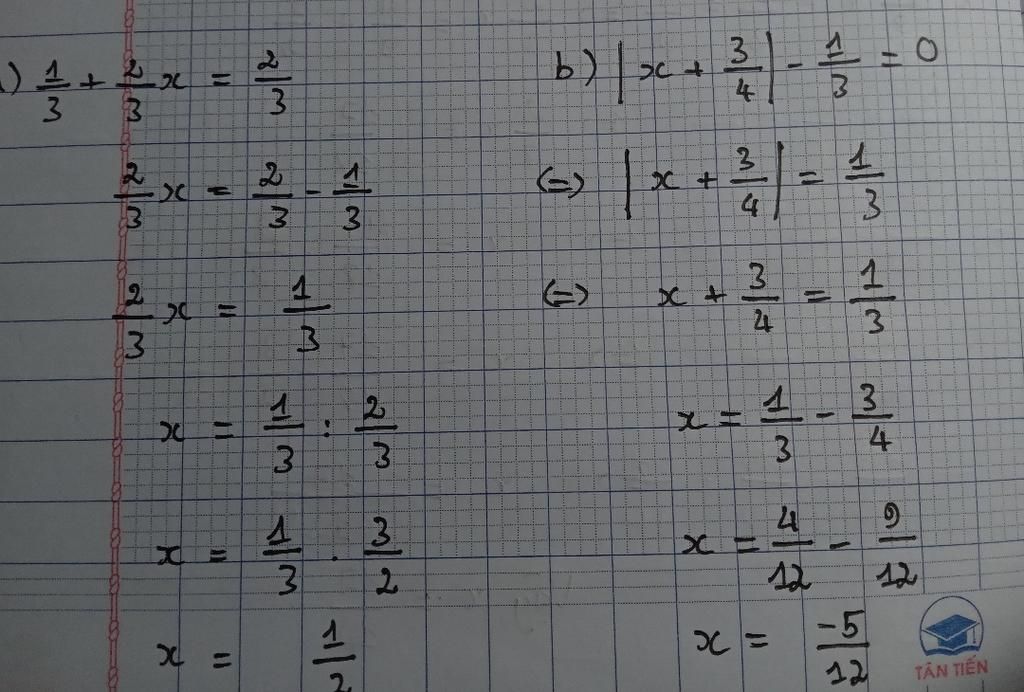 a) 1/3 + 2/3 x = 2/3
2/3 x = 2/3 - 1/3
2/3 x = 1/3
x = 1/3 : 2/3
x = 1/3 . 3/2
x = 1/2
b) |x + 3/4| - 1/3 = 0
(=) |x + 3/4| = 1/3
(=) x + 3/4 = 1/3
x = 1/3 - 3/4
x = 4/12 - 9/12
x = -5/12
TÂN TIẾN